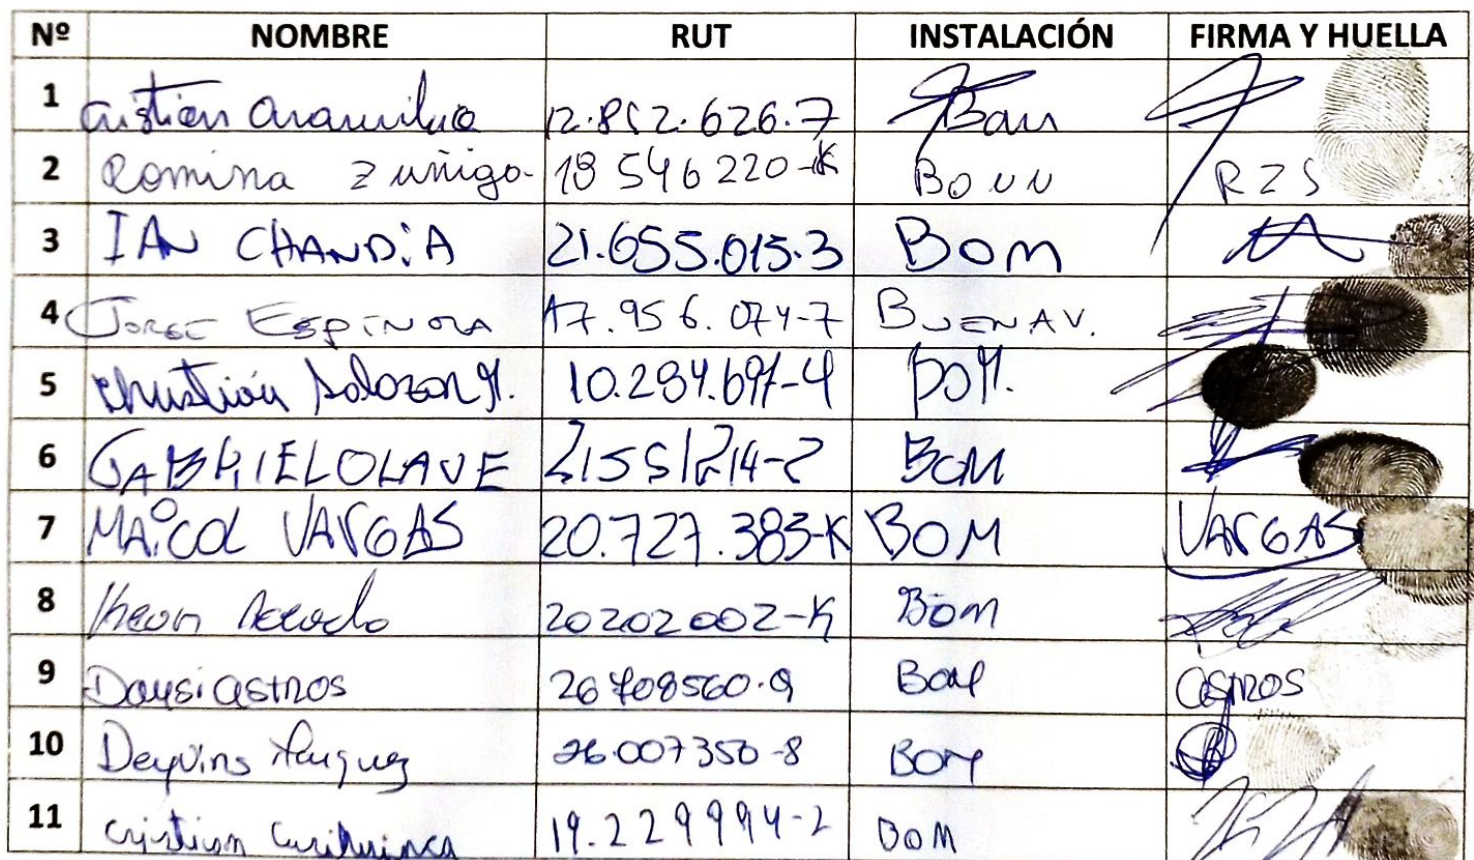 Nº NOMBRE RUT INSTALACIÓN FIRMA Y HUELLA
1 Cristian 12.852.626.7 Bom
2 Romina Zuñiga 18 546 220-K BONN RZS
3 IAN CHANDiA 21.655.015.3 BOM
4 JORGE ESPINOZA 17.956.074-7 BUENAV.
5 Christian Salazar M. 10.284.697-4 BOM.
6 GABRIEL OLAVE 21551214-2 BOM
7 MAiCOL VARGAS 20.727.383-K BOM VARGAS
8 20202002-K BOM
9 Daysi castros 26708560.9 BOM castros
10 Deyvins 26.007350-8 BOM
11 Cristian Curihuinca 19.229994-2 BOM